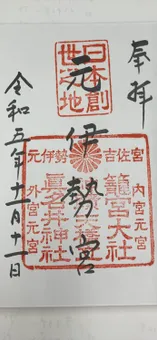 奉拝
日本創
世之地
元伊勢宮
元伊勢
吉佐宮
内宮元宮
籠宮大社
眞名井神社
外宮元宮
令和五年十二月十一日